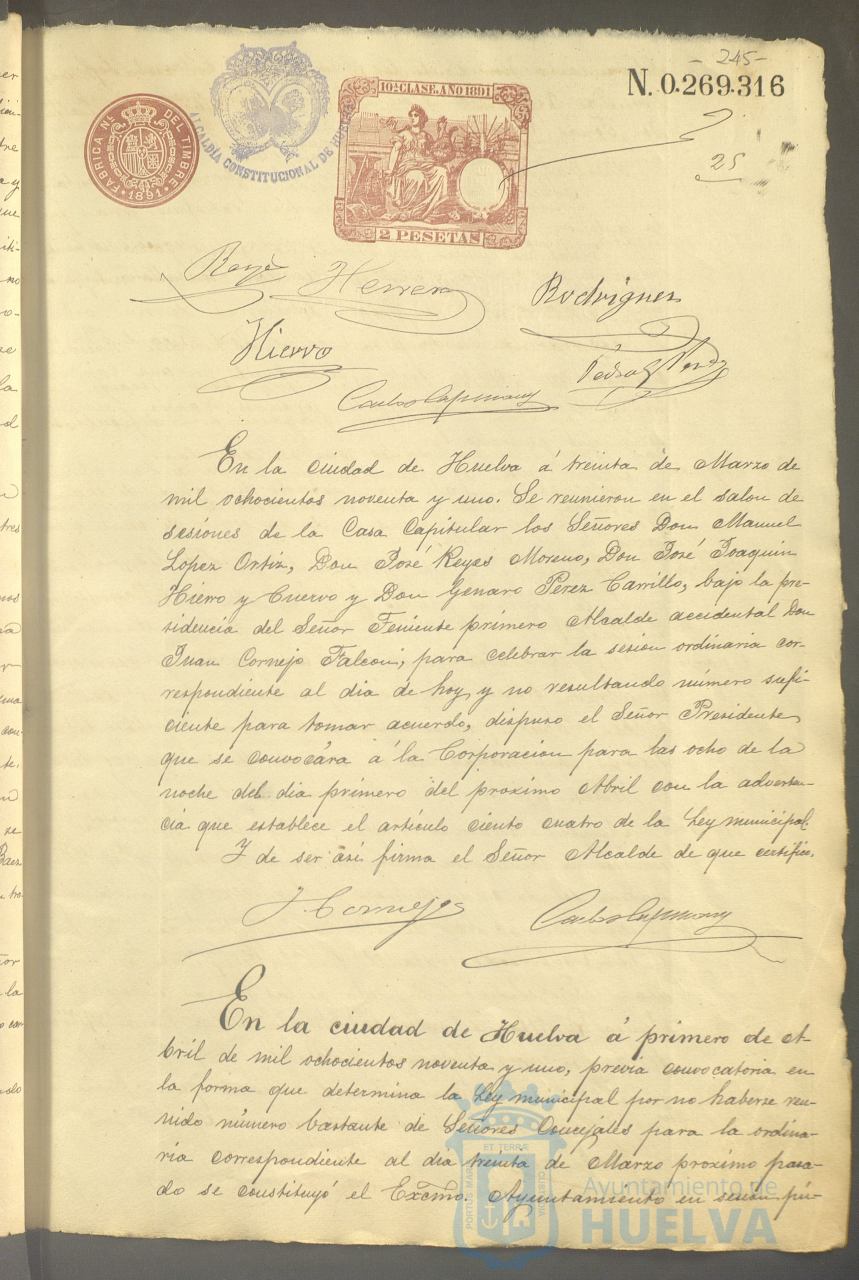 - 245 -
N. 0.269.316
25
FABRICA NL. DEL TIMBRE
1891
ALCALDÍA CONSTITUCIONAL DE HUELVA
10ª CLASE. AÑO 1891
2 PESETAS
Herrera
Rodriguez
Hierro
Carlos Capmany
En la ciudad de Huelva á treinta de Marzo de
mil ochocientos noventa y uno. Se reunieron en el salon de
sesiones de la Casa Capitular los Señores Don Manuel
Lopez Ortiz, Don José Reyes Moreno, Don José Joaquin
Hierro y Cuervo y Don Genaro Perez Carrillo, bajo la pre-
sidencia del Señor Teniente primero Alcalde accidental Don
Juan Cornejo Falcon, para celebrar la sesion ordinaria cor-
respondiente al dia de hoy, y no resultando número sufi-
ciente para tomar acuerdo, dispuso el Señor Presidente,
que se convocára á la Corporacion para las ocho de la
noche del dia primero del proximo Abril con la adverten-
cia que establece el artículo ciento cuatro de la Ley municipal.
Y de ser asi firma el Señor Alcalde de que certifico.
J Cornejo
Carlos Capmany
En la ciudad de Huelva á primero de A-
bril de mil ochocientos noventa y uno, previa convocatoria en
la forma que determina la Ley municipal por no haberse reu-
nido número bastante de Señores Concejales para la ordina-
ria correspondiente al dia treinta de Marzo proximo pasa-
do se constituyó el Excmo. Ayuntamiento en sesion pú-
PORTUS MARIS ET TERRÆ CUSTODIA
Ayuntamiento de
HUELVA